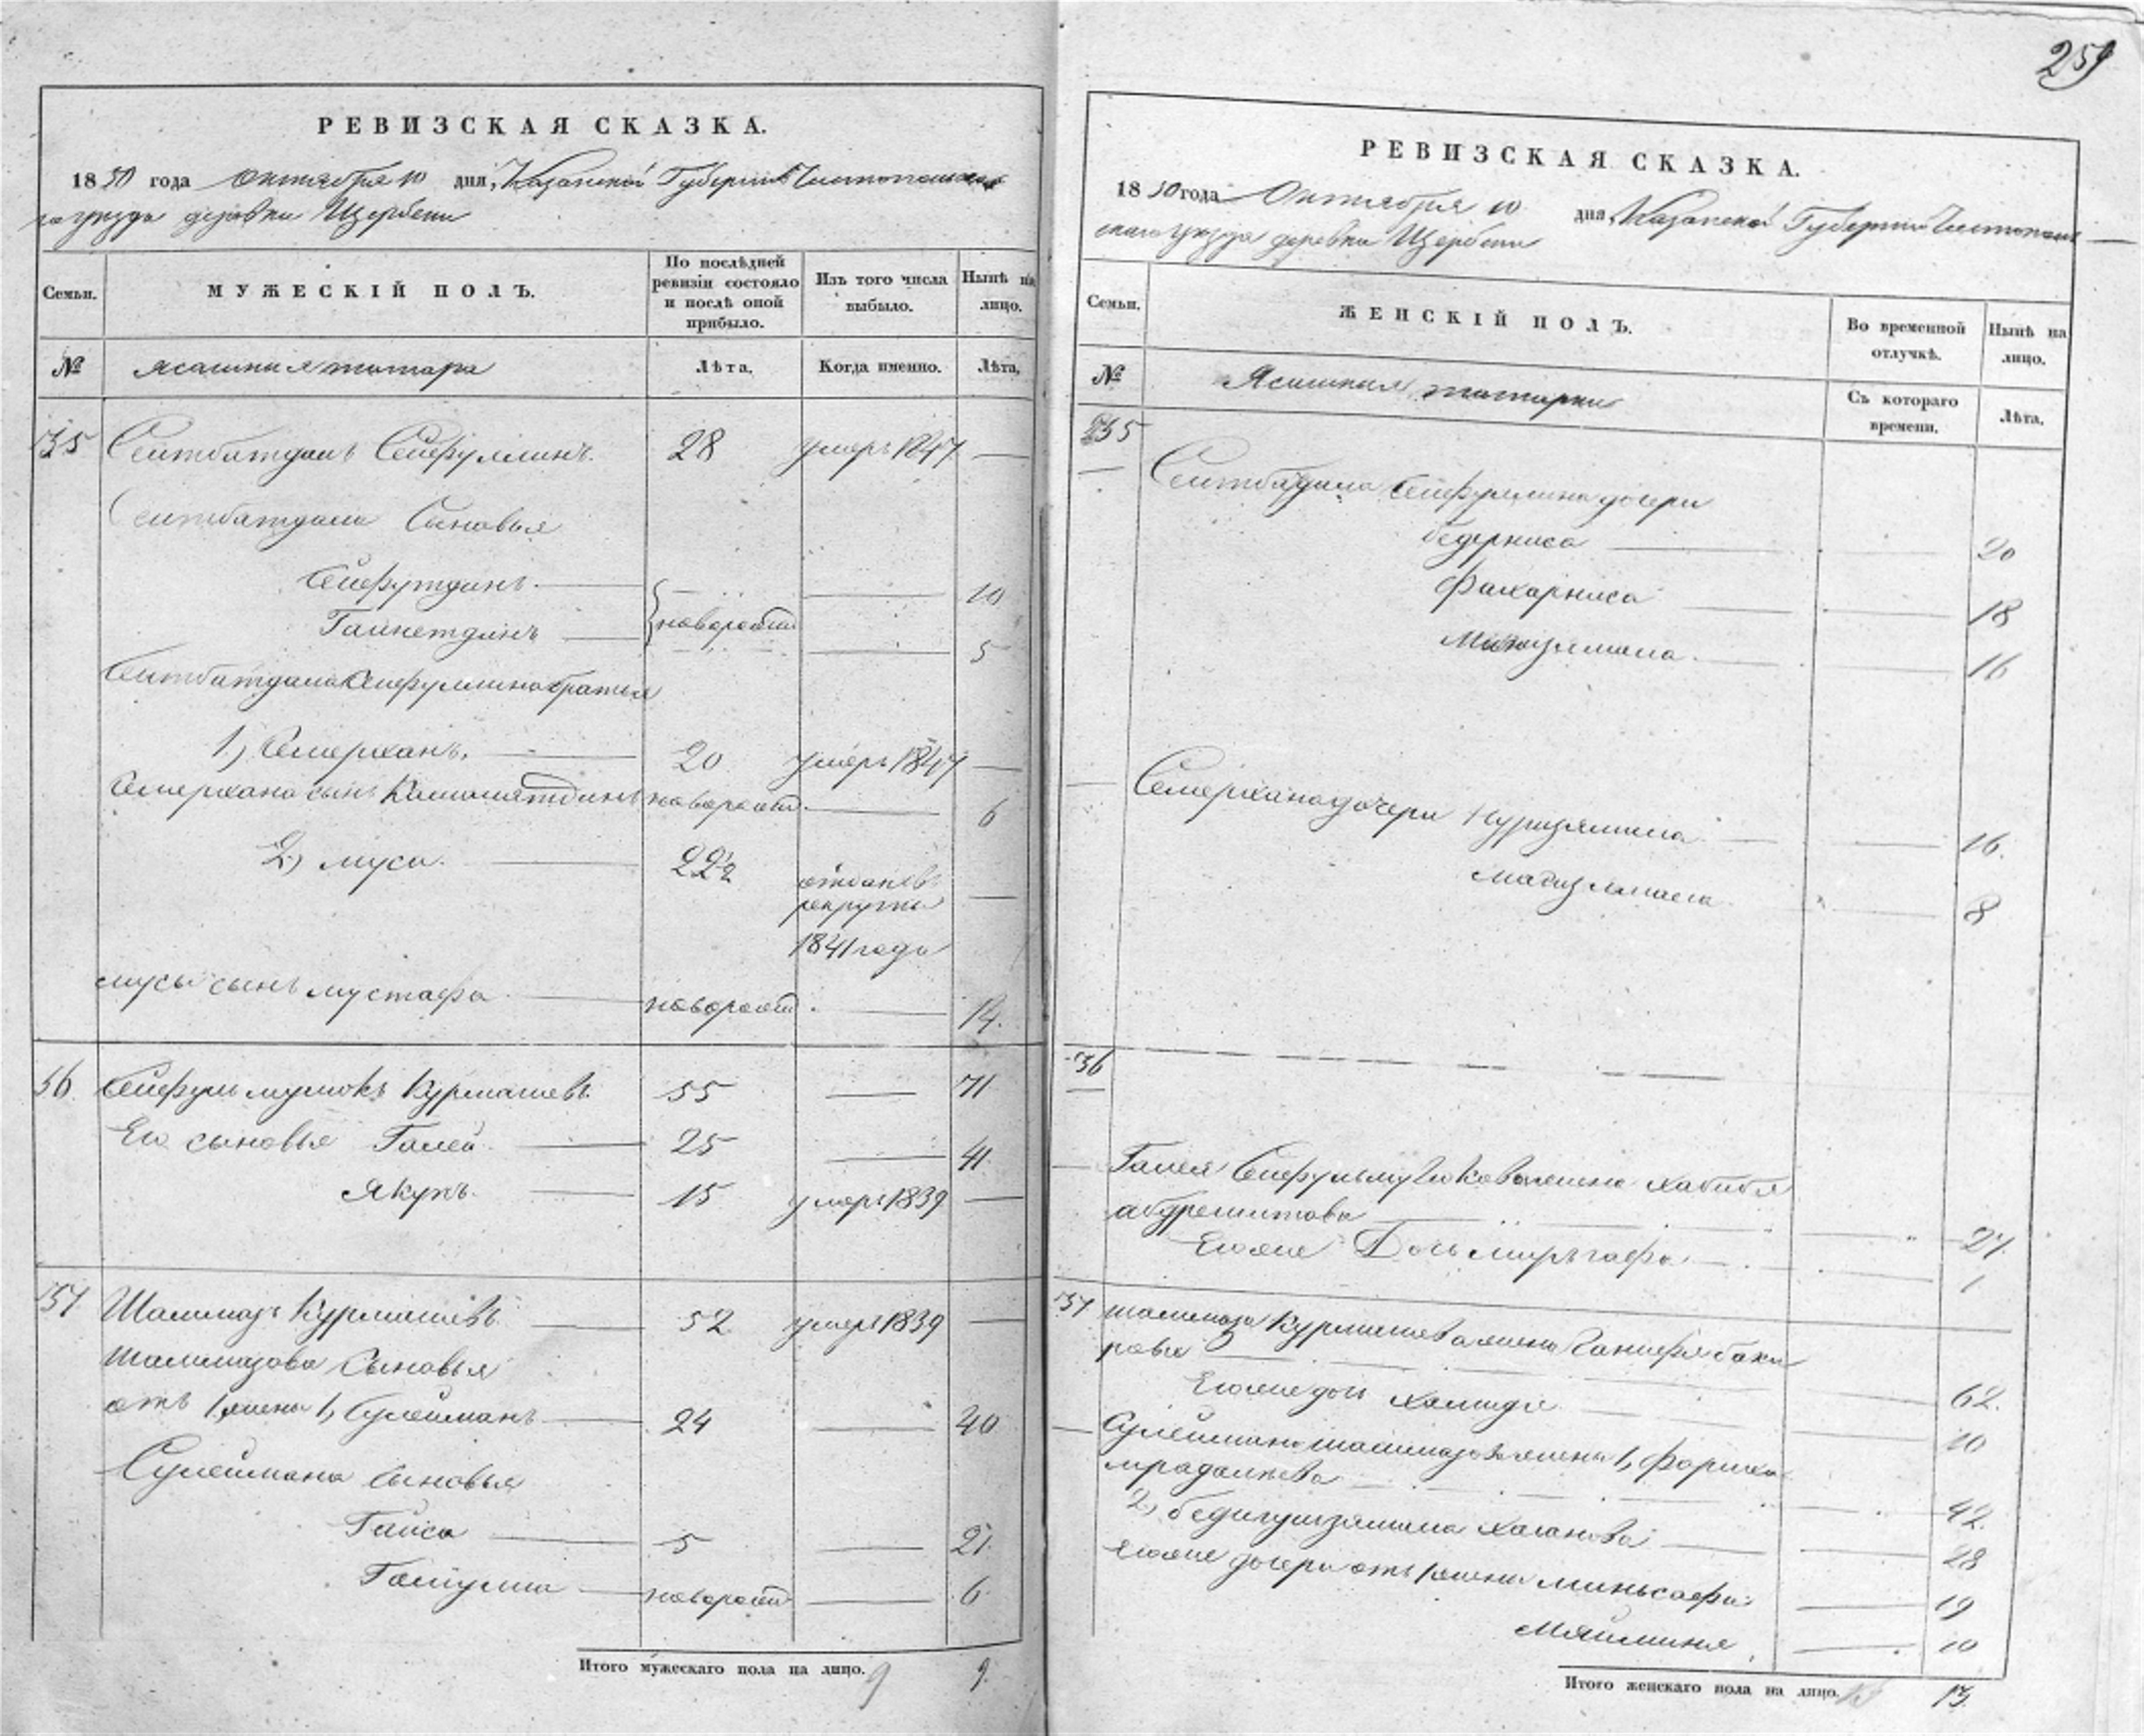 259
РЕВИЗСКАЯ СКАЗКА.
1850 года Октября 10 дня, Казанской Губернии Чистопольска
го уезда деревни Щербени
Семьи.
МУЖЕСКІЙ ПОЛЪ.
По послѣдней ревизіи состояло и послѣ оной прибыло.
Изъ того числа выбыло.
Нынѣ на лицо.
№
ясашныя татара
Лѣта.
Когда именно.
Лѣта.
135 Сеитбатталъ Сейфуллинъ 28 умеръ 1847 —
Сеитбаттала Сыновья
Сейфутдинъ — 10
Гайнетдинъ — новорожд — 5
Сеитбаттала Сейфуллина братья
1) Семерханъ. — 20 умеръ 1847 —
Семерхана сынъ Камалятдинъ новорожд. — 6
2) муса. — 22½ отданъ въ
рекруты —
1841 года
мусы сынъ мустафа — новорожд. — 14.
136 Сейфулъмулюкъ Курмашевъ 55 — 71
Его сыновья Галей — 25 — 41
Якупъ. — 15 умеръ 1839 —
137 Шалимазъ Курмашевъ — 52 умеръ 1839 —
Шалимазова Сыновья
отъ 1 жены 1, Сулейманъ — 24 — 40
Сулеймана сыновья
Гайса — 5 — 21.
— новорожд — 6
Итого мужескаго пола на лицо. 9 9.
РЕВИЗСКАЯ СКАЗКА.
1850 года Октября 10 дня, Казанской Губернии Чистополь
скаго уезда деревни Щербени
Семьи.
ЖЕНСКІЙ ПОЛЪ.
Во временной отлучкѣ.
Нынѣ на лицо.
№
Ясашныя татарки
Съ котораго времени.
Лѣта.
135
Сеитбаттала Сейфуллина дочери
бедерниса — 20
Фахарниса — 18
— 16
Семерхана дочери — 16.
— 8
136
Галея Сейфульмулюкова жена хабибя
абдрешитова — 27.
Ево же Дочь — 1
137 шалимаза Курмашева жена баки
рова — 62.
Ево же дочь хамидя — 10
Сулеймана шалимазова жены 1,
— 42.
2, хасанова — 28
Ево же дочери отъ 1 жены миньсафа — 19
— 10
Итого женскаго пола на лицо. 13 13.